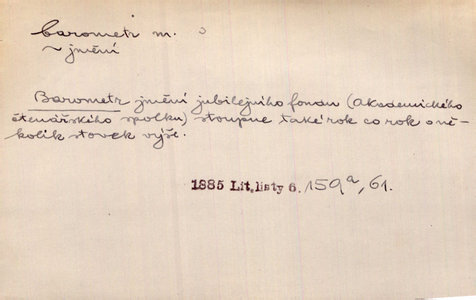 barometr m.
~ jmění
Barometr jmění jubilejního fondu (Akademického
čtenářského spolku) stoupne také rok co rok o ně-
kolik stovek výše.
1885 Lit. listy 6. 159a, 61.